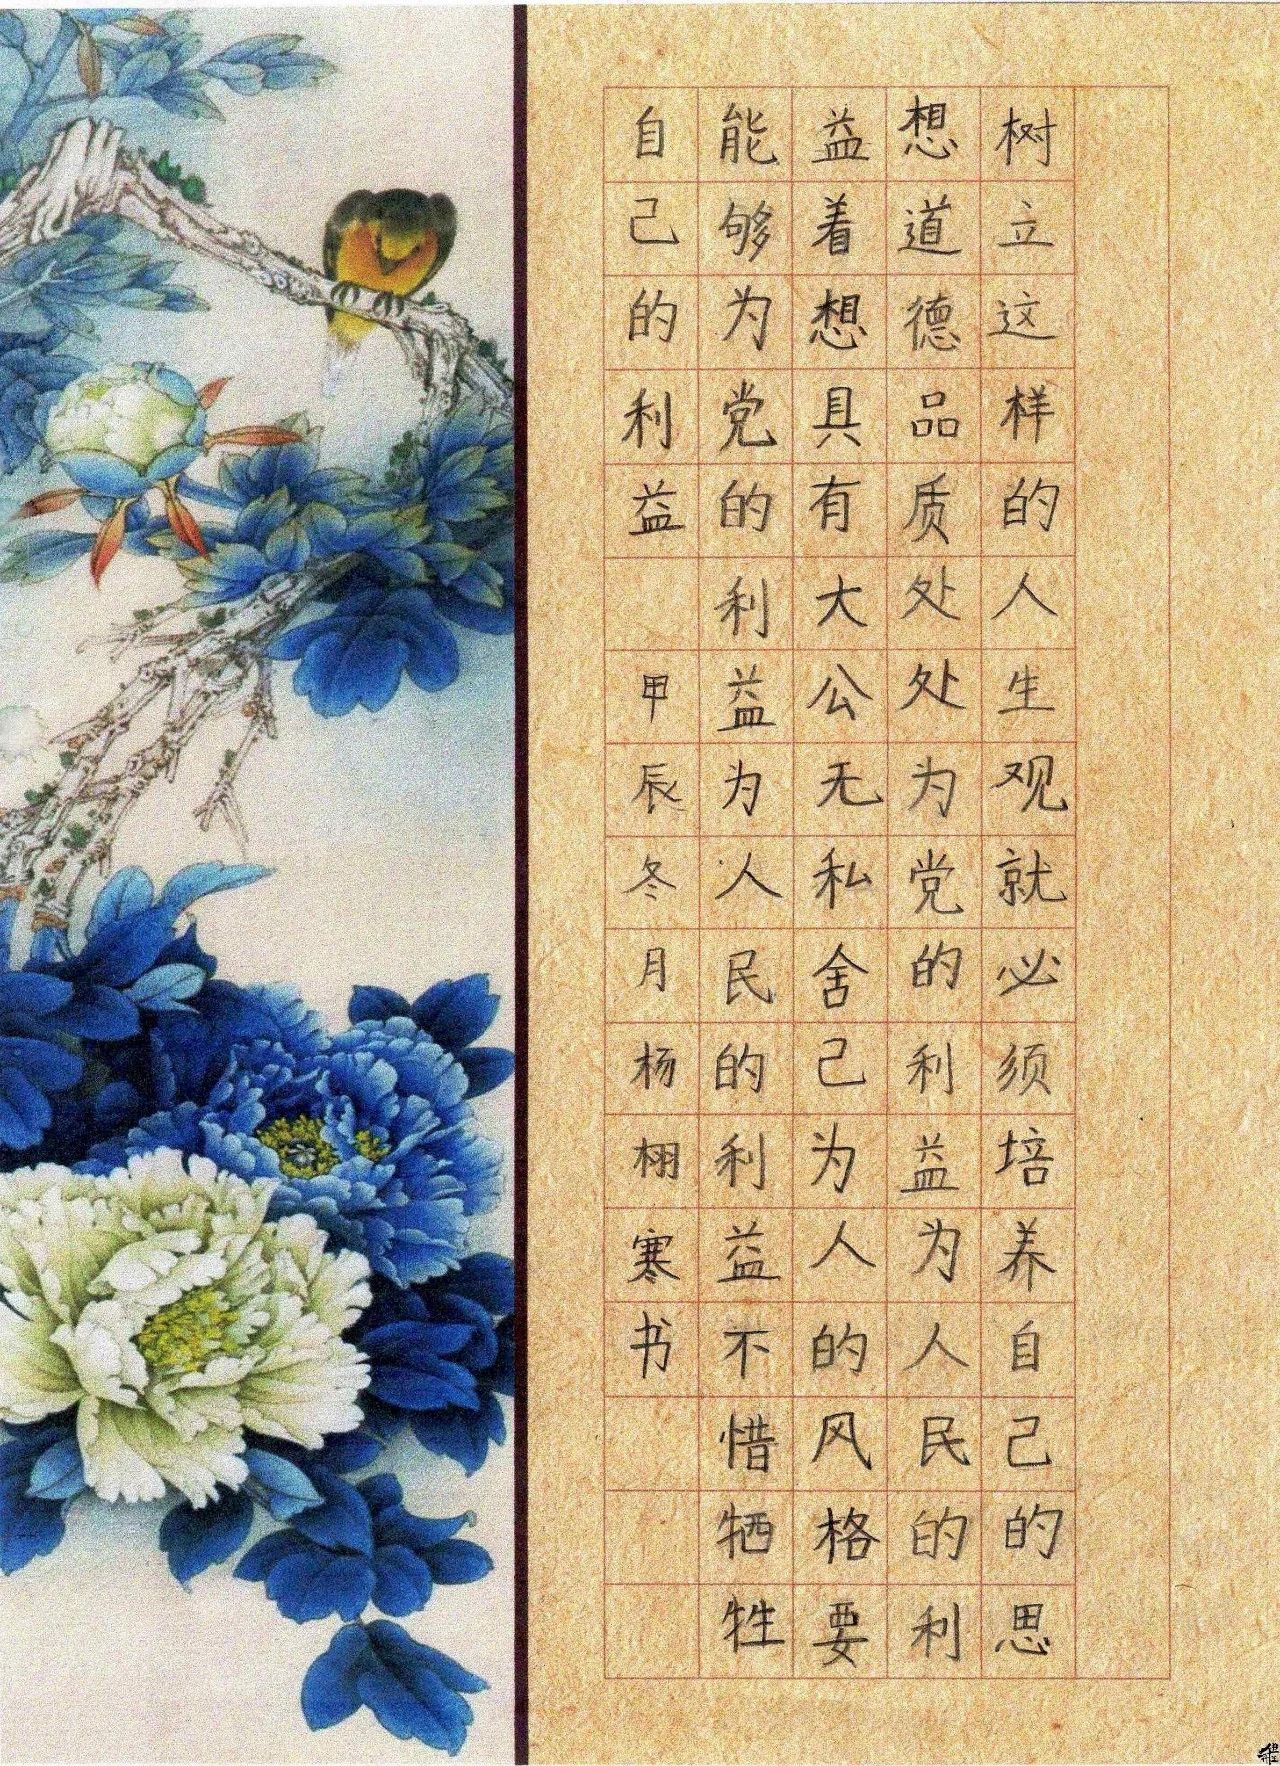 树立这样的人生观就必须培养自己的思
想道德品质处处为党的利益为人民的利
益着想具有大公无私舍己为人的风格要
能够为党的利益为人民的利益不惜牺牲
自己的利益 甲辰冬月杨栩寒书